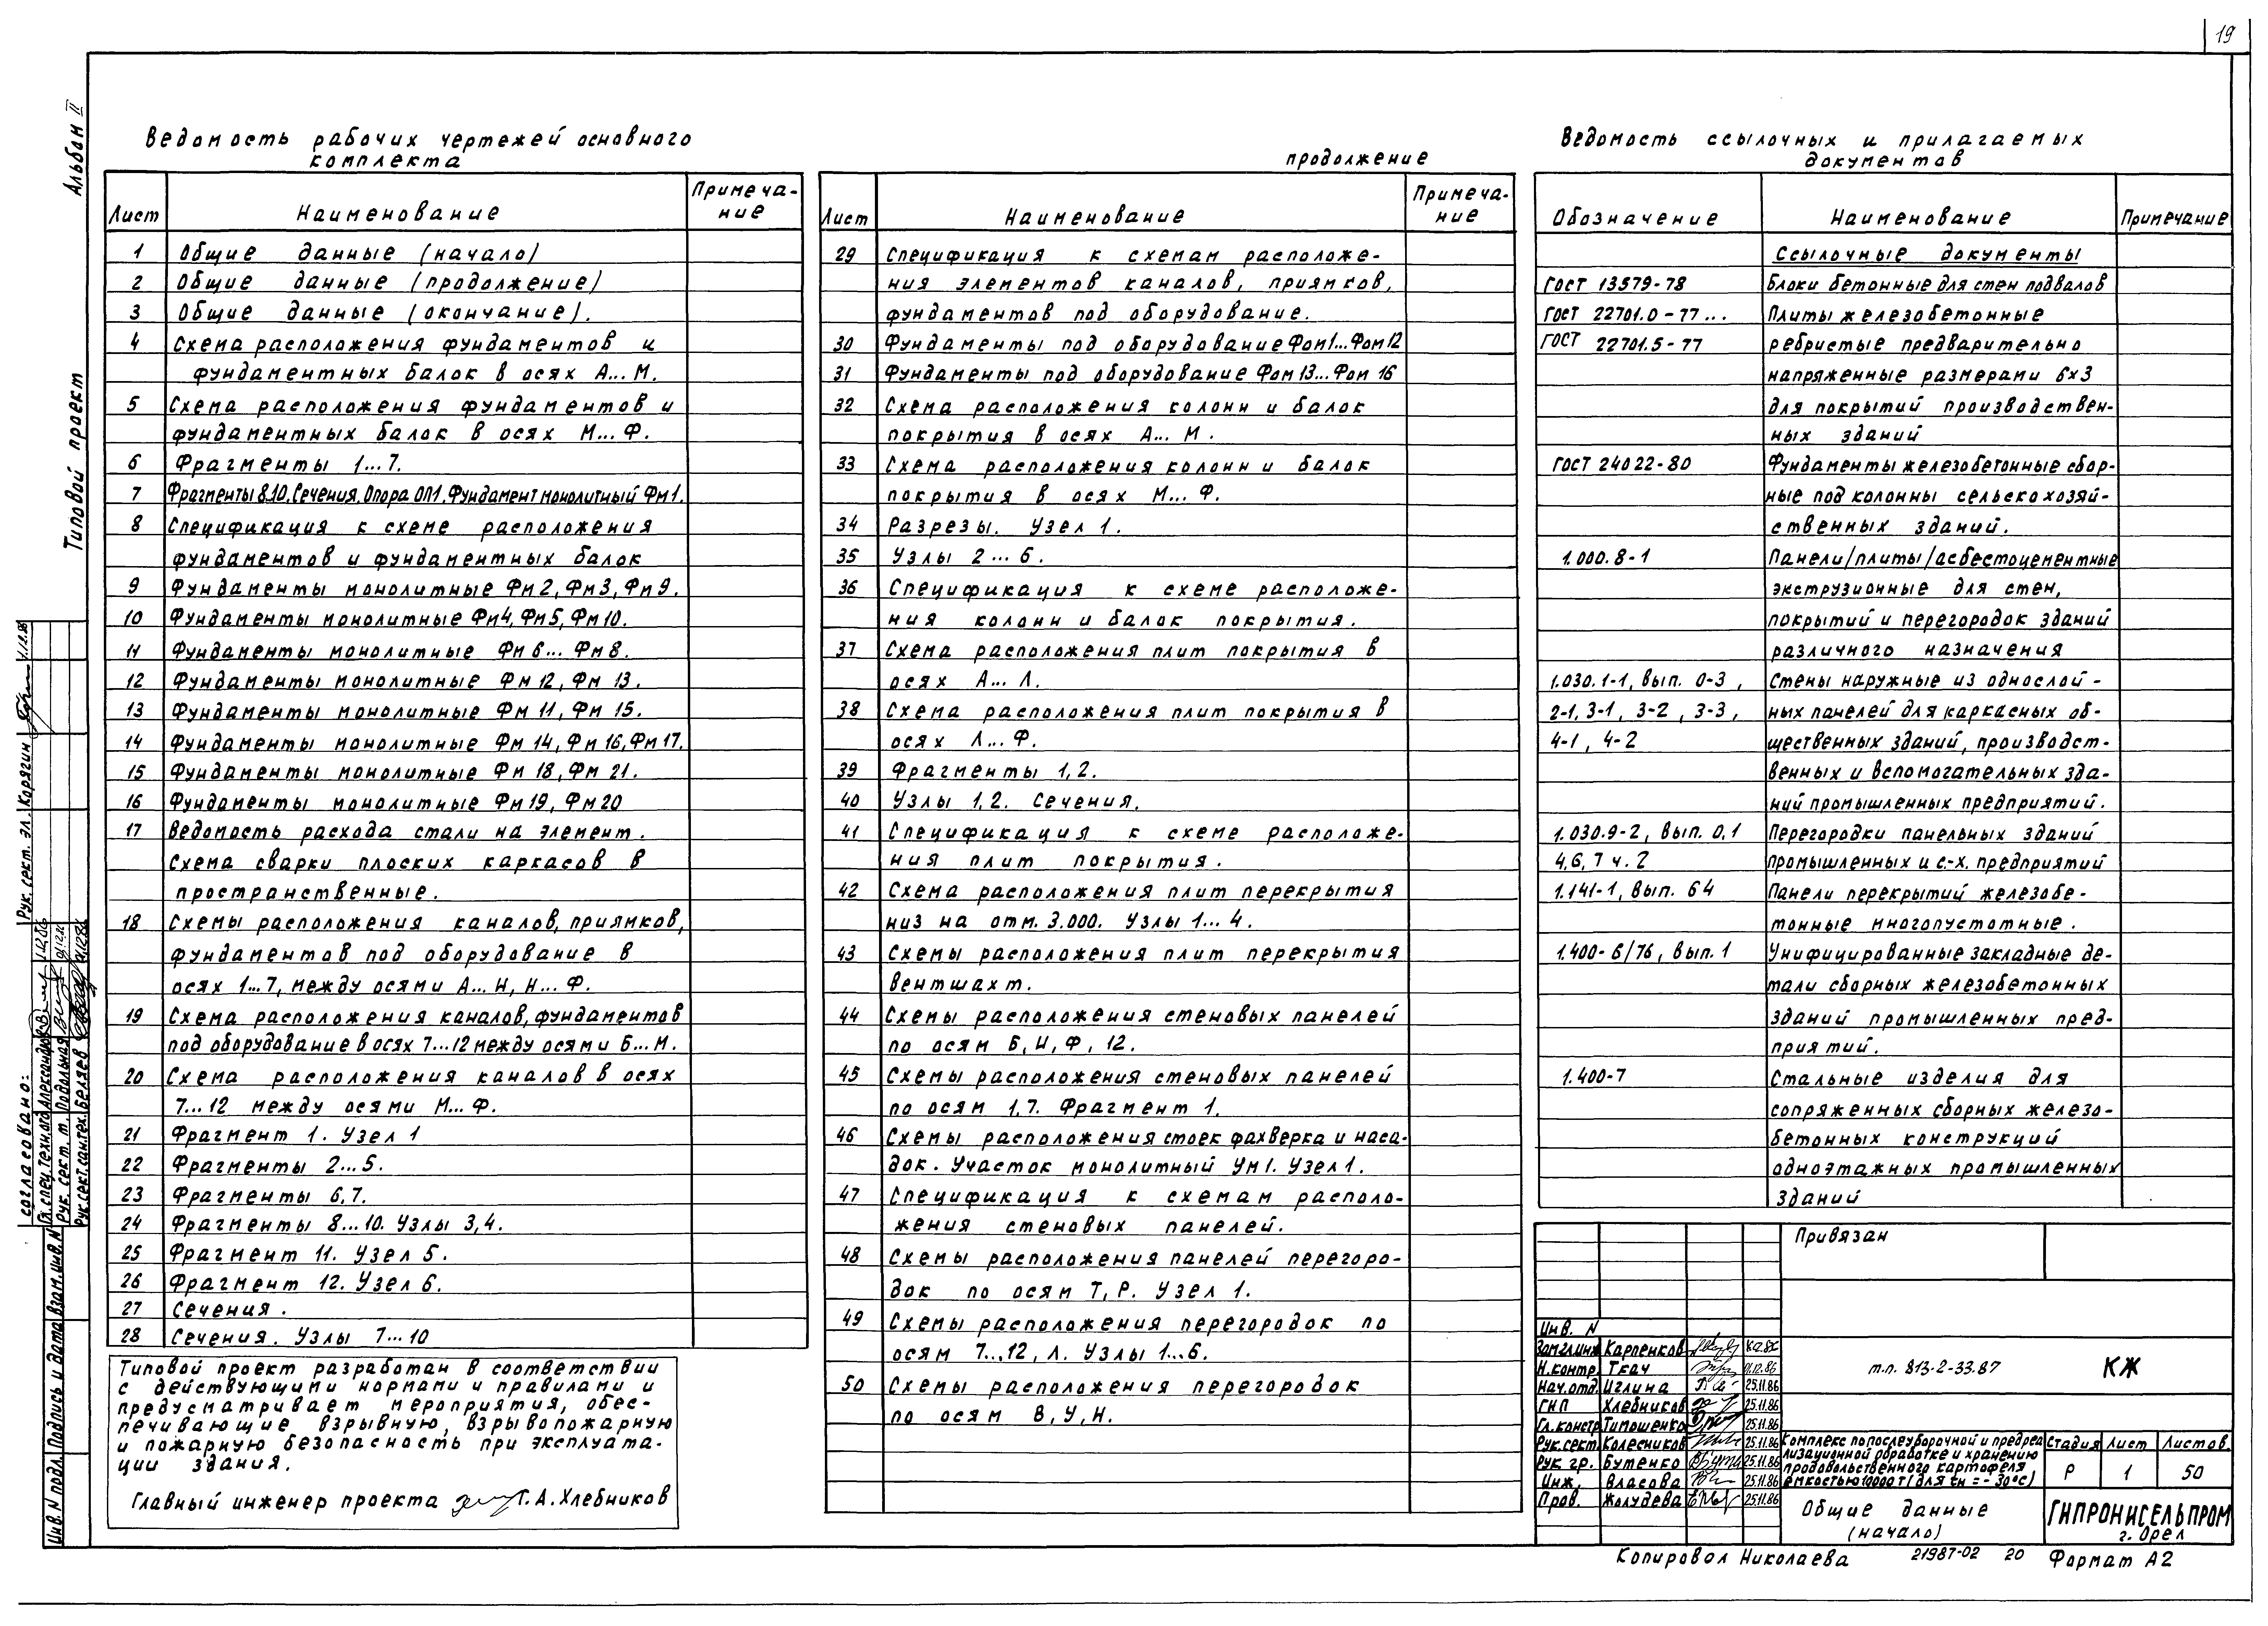 19
Альбом II
Типовой проект
Ведомость рабочих чертежей основного
комплекта
Лист Наименование Примеча-
ние
1 Общие данные (начало)
2 Общие данные (продолжение)
3 Общие данные (окончание).
4 Схема расположения фундаментов и
фундаментных балок в осях А...М.
5 Схема расположения фундаментов и
фундаментных балок в осях М...Ф.
6 Фрагменты 1...7.
7 Фрагменты 8...10. Сечения. Опора ОП1. Фундамент монолитный Фм1.
8 Спецификация к схеме расположения
фундаментов и фундаментных балок
9 Фундаменты монолитные Фм2, Фм3, Фм9.
10 Фундаменты монолитные Фм4, Фм5, Фм10.
11 Фундаменты монолитные Фм6...Фм8.
12 Фундаменты монолитные Фм12, Фм13.
13 Фундаменты монолитные Фм11, Фм15.
14 Фундаменты монолитные Фм14, Фм16, Фм17.
15 Фундаменты монолитные Фм18, Фм21.
16 Фундаменты монолитные Фм19, Фм20
17 Ведомость расхода стали на элемент.
Схема сварки плоских каркасов в
пространственные.
18 Схемы расположения каналов, приямков,
фундаментов под оборудование в
осях 1...7, между осями А...И, И...Ф.
19 Схема расположения каналов, фундаментов
под оборудование в осях 7...12 между осями Б...М.
20 Схема расположения каналов в осях
7...12 между осями М...Ф.
21 Фрагмент 1. Узел 1
22 Фрагменты 2...5.
23 Фрагменты 6,7.
24 Фрагменты 8...10. Узлы 3,4.
25 Фрагмент 11. Узел 5.
26 Фрагмент 12. Узел 6.
27 Сечения.
28 Сечения. Узлы 7...10
Типовой проект разработан в соответствии
с действующими нормами и правилами и
предусматривает мероприятия, обес-
печивающие взрывную, взрывопожарную
и пожарную безопасность при эксплуата-
ции здания.
Главный инженер проекта Г.А.Хлебников
продолжение
Лист Наименование Примеча-
ние
29 Спецификация к схемам расположе-
ния элементов каналов, приямков,
фундаментов под оборудование.
30 Фундаменты под оборудование Фом1...Фом12
31 Фундаменты под оборудование Фом13...Фом16
32 Схема расположения колонн и балок
покрытия в осях А...М.
33 Схема расположения колонн и балок
покрытия в осях М...Ф.
34 Разрезы. Узел 1.
35 Узлы 2...6.
36 Спецификация к схеме расположе-
ния колонн и балок покрытия.
37 Схема расположения плит покрытия в
осях А...Л.
38 Схема расположения плит покрытия в
осях Л...Ф.
39 Фрагменты 1,2.
40 Узлы 1,2. Сечения.
41 Спецификация к схеме расположе-
ния плит покрытия.
42 Схема расположения плит перекрытия
низ на отм. 3.000. Узлы 1...4.
43 Схемы расположения плит перекрытия
вентшахт.
44 Схемы расположения стеновых панелей
по осям Б, И, Ф, 12.
45 Схемы расположения стеновых панелей
по осям 1,7. Фрагмент 1.
46 Схемы расположения стоек фахверка и наса-
док. Участок монолитный Ум1. Узел 1.
47 Спецификация к схемам располо-
жения стеновых панелей.
48 Схемы расположения панелей перегоро-
док по осям Т, Р. Узел 1.
49 Схемы расположения перегородок по
осям 7...12, Л. Узлы 1...6.
50 Схемы расположения перегородок
по осям В, У, Н.
Ведомость ссылочных и прилагаемых
документов
Обозначение Наименование Примечание
Ссылочные документы
ГОСТ 13579-78 Блоки бетонные для стен подвалов
ГОСТ 22701.0-77... Плиты железобетонные
ГОСТ 22701.5-77 ребристые предварительно
напряженные размерами 6х3
для покрытий производствен-
ных зданий
ГОСТ 24022-80 Фундаменты железобетонные сбор-
ные под колонны сельскохозяй-
ственных зданий.
1.000.8-1 Панели/плиты/асбестоцементные
экструзионные для стен,
покрытий и перегородок зданий
различного назначения
1.030.1-1, вып. 0-3, Стены наружные из однослой-
2-1, 3-1, 3-2, 3-3, ных панелей для каркасных об-
4-1, 4-2 щественных зданий, производст-
венных и вспомогательных зда-
ний промышленных предприятий.
1.030.9-2, вып. 0,1 Перегородки панельных зданий
4,6,7 ч.2 промышленных и с.-х. предприятий
1.141-1, вып. 64 Панели перекрытий железобе-
тонные многопустотные.
1.400-6/76, вып.1 Унифицированные закладные де-
тали сборных железобетонных
зданий промышленных пред-
приятий.
1.400-7 Стальные изделия для
сопряженных сборных железо-
бетонных конструкций
одноэтажных промышленных
зданий
Привязан
Инв. N
Зам.гл.инж Карпенков
Н.контр. Ткач 01.12.86
Нач.отд. Иглина 25.11.86
ГИП Хлебников 25.11.86
Гл.констр. Тимошенко 25.11.86
Рук.сект. Колесников 25.11.86
Рук гр. Бутенко 25.11.86
Инж. Власова 25.11.86
Пров. Жолудева 25.11.86
т.п. 813-2-33.87 КЖ
Комплекс по послеуборочной и предреа
лизационной обработке и хранению
продовольственного картофеля
емкостью 10000 т (для tн = -30°С)
Стадия Лист Листов
Р 1 50
Общие данные
(начало)
ГИПРОНИСЕЛЬПРОМ
г. Орел
Копировал Николаева 21987-02 20 Формат А2
Согласовано:
Гл.спец.техн.отд Александров
Рук. сект. т. Подольная
Рук.сект.сан.тех. Беляев
Рук. сект. эл. Корягин
Инв. N подл. Подпись и дата Взам.инв.N